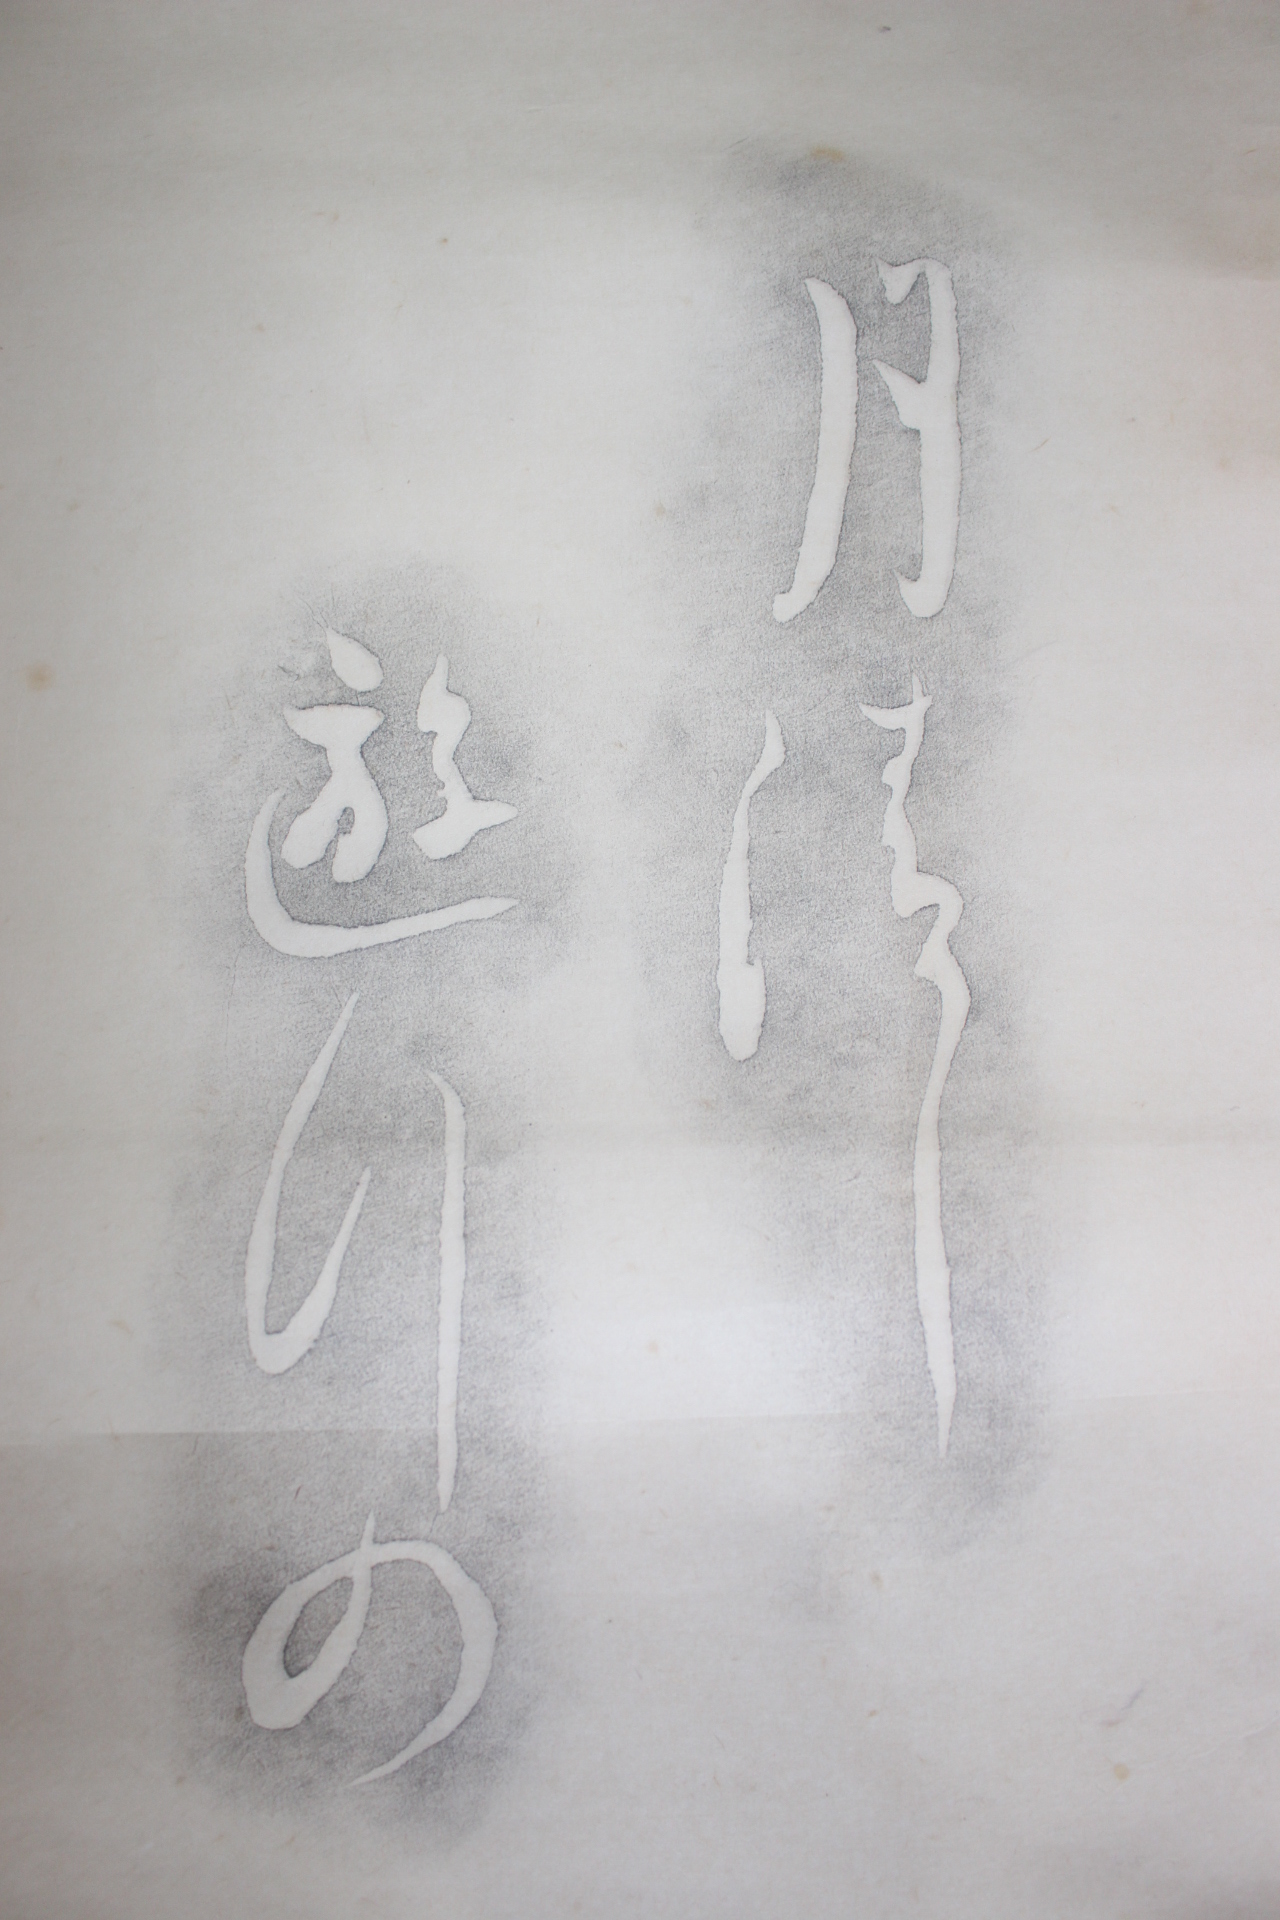 月清し
遊行の